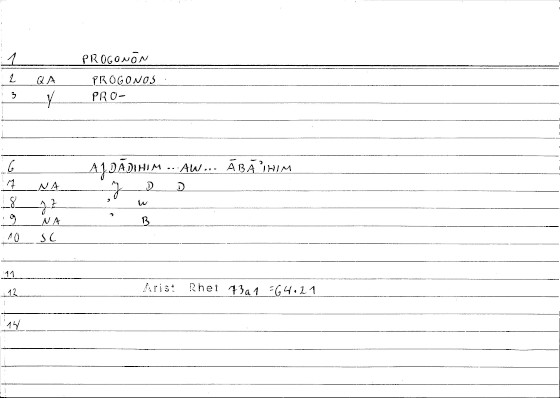 1 PROGONŌN
2 QA PROGONOS
3 γ PRO-
6 AJDĀDIHIM .. AW... ĀBĀʾIHIM
7 NA J D D
8 J7 ʾ W
9 NA ʾ B
10 SC
11
12 Arist Rhet 73a1 =64.21
14